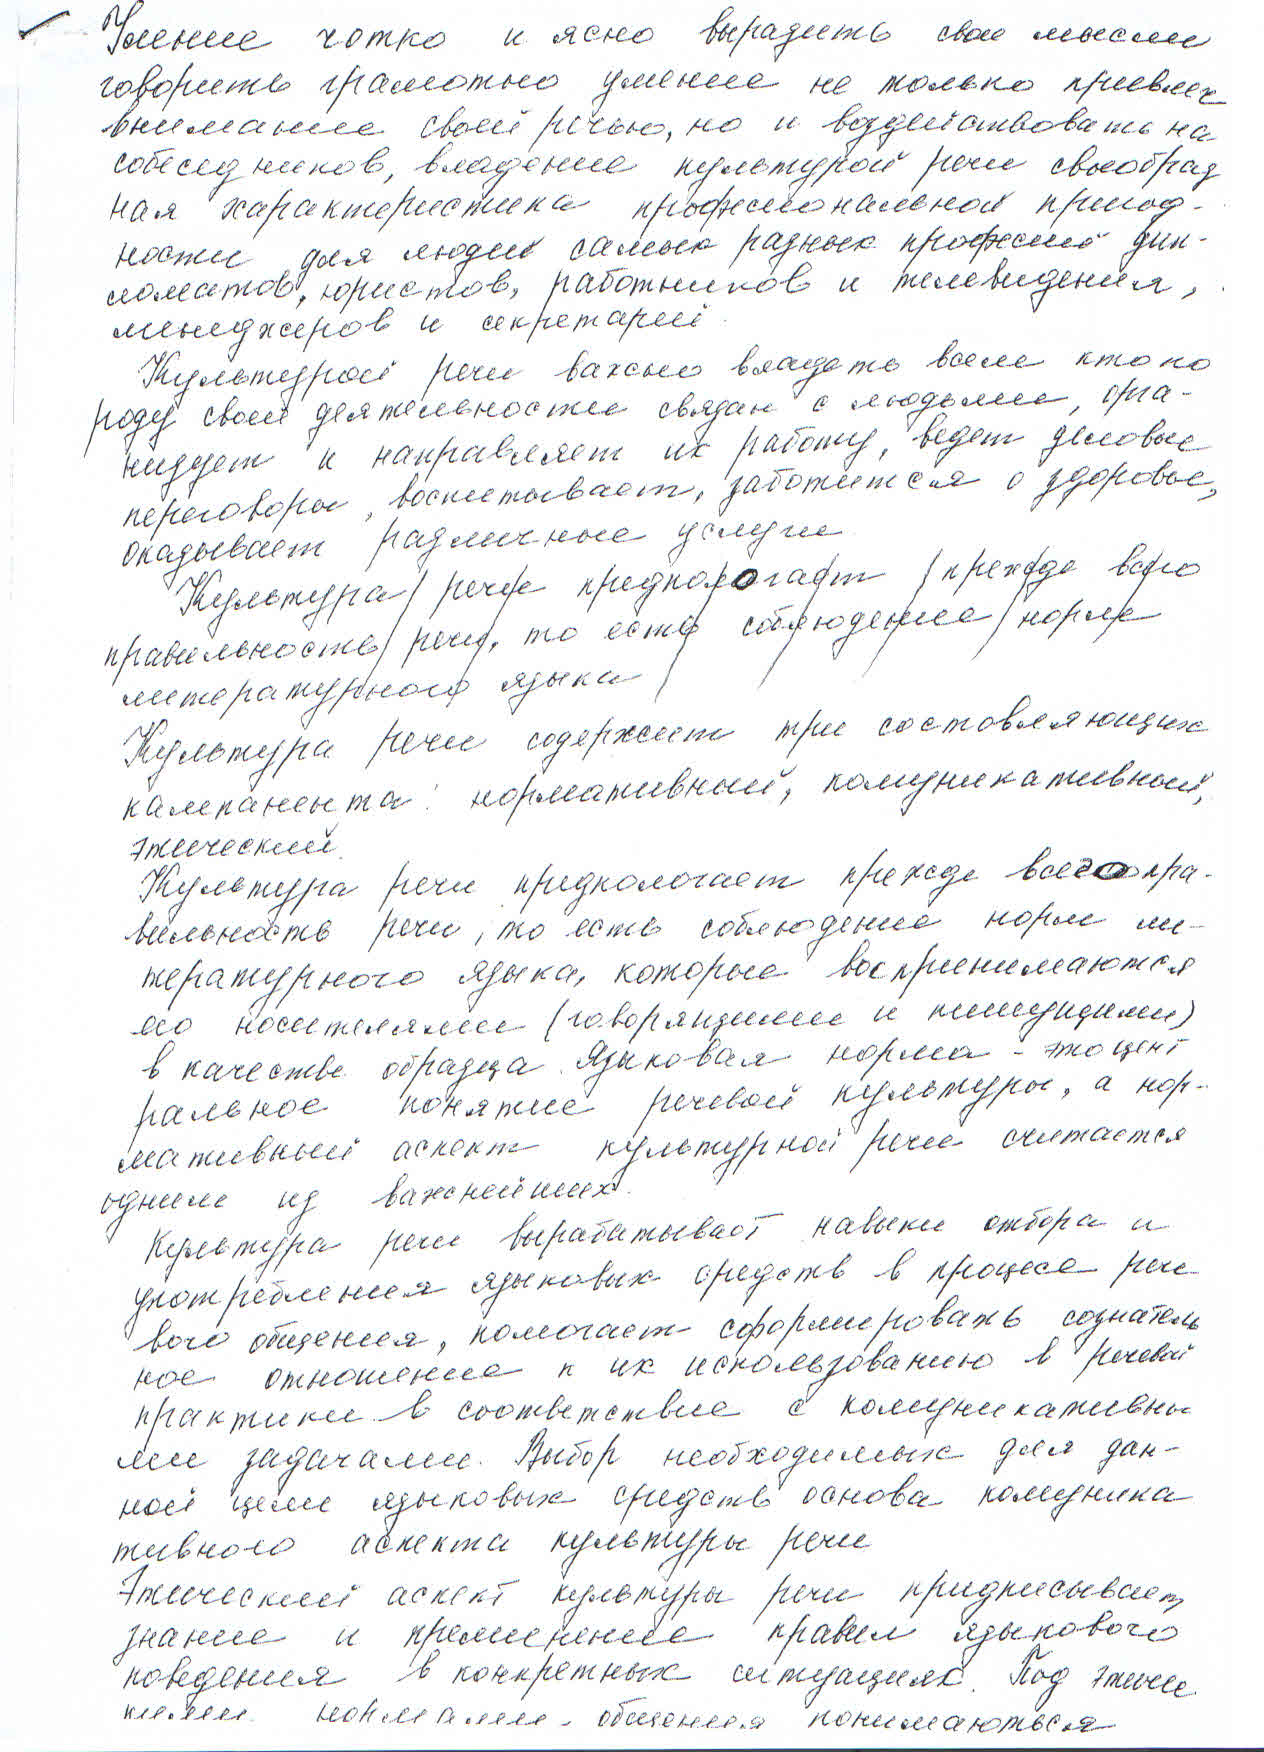 Умение чотко и ясно выразить свои мысли
говорить грамотно умение не только привлеч
внимание своей речью, но и воздействовать на
собеседников, владение культурой речи своеобраз
ная характеристика профисиональной пригод-
ности для людей самых разных професий дип-
ломатов, юристов, работников и телевидения,
менеджеров и секретарей.
Культурой речи важно владеть всем кто по
роду своей деятельности связан с людьми, орга-
низует и направляет их работу, ведет деловые
переговоры, воспитывает, заботится о здоровье,
оказывает различные услуги
Культура речи предпологает прежде всего
правильность речи, то есть соблюдение норм
литературного языка
Культура речи содержит три состовляющих
кампанента: нормативный, комуникативный,
этический.
Культура речи предпологает прежде всего пра-
вильность речи, то есть соблюдение норм ли-
тературного языка, которые воспринимаются
его носителями (говорящими и пишущими)
в качестве образца. Языковая норма - это цент
ральное понятие речевой культуры, а нор-
мативный аспект культурной речи считается
одним из важнейших.
Культура речи вырабатывает навыки отбора и
употребления языковых средств в процесе рече
вого общения, помогает сформировать сознатель
ное отношение к их использованию в речевой
практики в соответствие с комуникативны
ми задачами. Выбор необходимых для дан-
ной цели языковых средств основа комуника
тивного аспекта культуры речи
Этический аспект культуры речи придписывает
знание и применение правил языкового
поведения в конкретных ситуациях. Под этиче
скими нормами общения понимаються